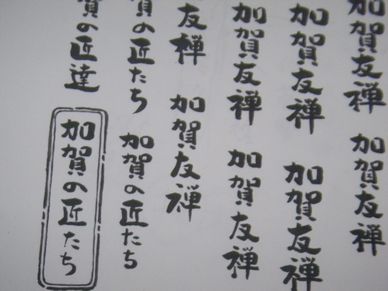 加賀友禅
加賀友禅
加賀友禅
加賀友禅
加賀友禅
加賀友禅
友禅
加賀友禅
賀の匠たち
加賀の匠たち
賀の匠達
加賀の匠たち